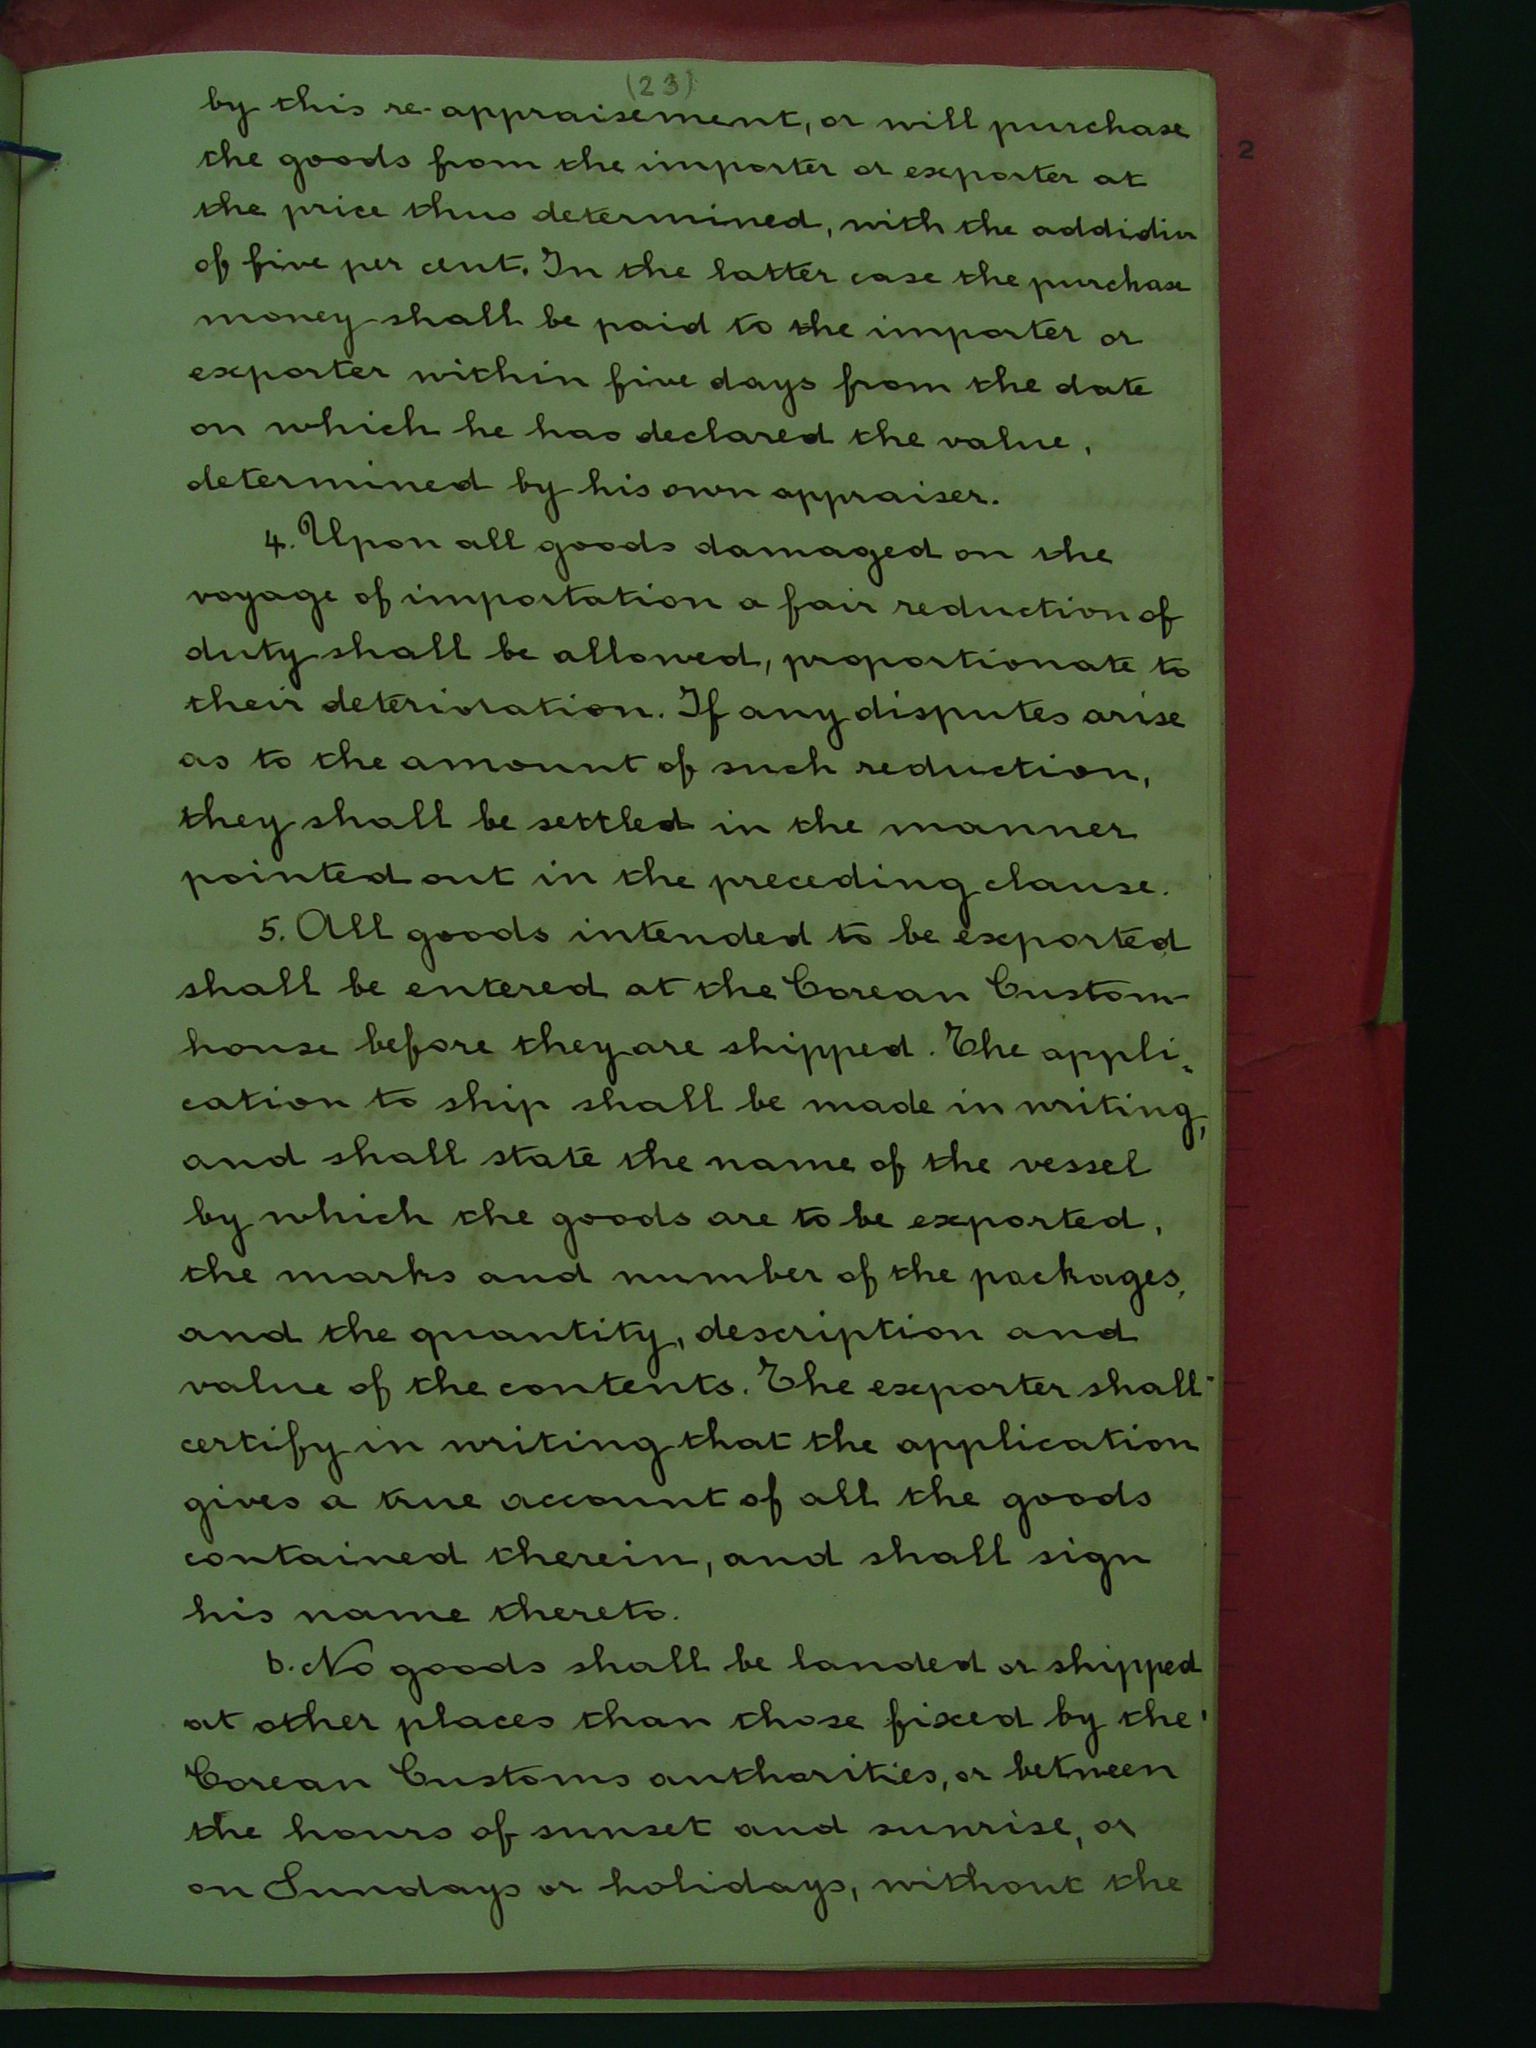 (23)
by this re-appraisement, or will purchase
the goods from the importer or exporter at
the price thus determined, with the addidin
of five per cent. In the latter case the purchase
money shall be paid to the importer or
exporter within five days from the date
on which he has declared the value,
determined by his own appraiser.
4. Upon all goods damaged on the
voyage of importation a fair reduction of
duty shall be allowed, proportionate to
their deterioration. If any disputes arise
as to the amount of such reduction,
they shall be settled in the manner
pointed out in the preceding clause.
5. All goods intended to be exported
shall be entered at the Corean Custom-
house before they are shipped. The appli-
cation to ship shall be made in writing,
and shall state the name of the vessel
by which the goods are to be exported,
the marks and number of the packages,
and the quantity, description and
value of the contents. The exporter shall
certify in writing that the application
gives a true account of all the goods
contained therein, and shall sign
his name thereto.
6. No goods shall be landed or shipped
at other places than those fixed by the
Corean Customs authorities, or between
the hours of sunset and sunrise, or
on Sundays or holidays, without the
. 2